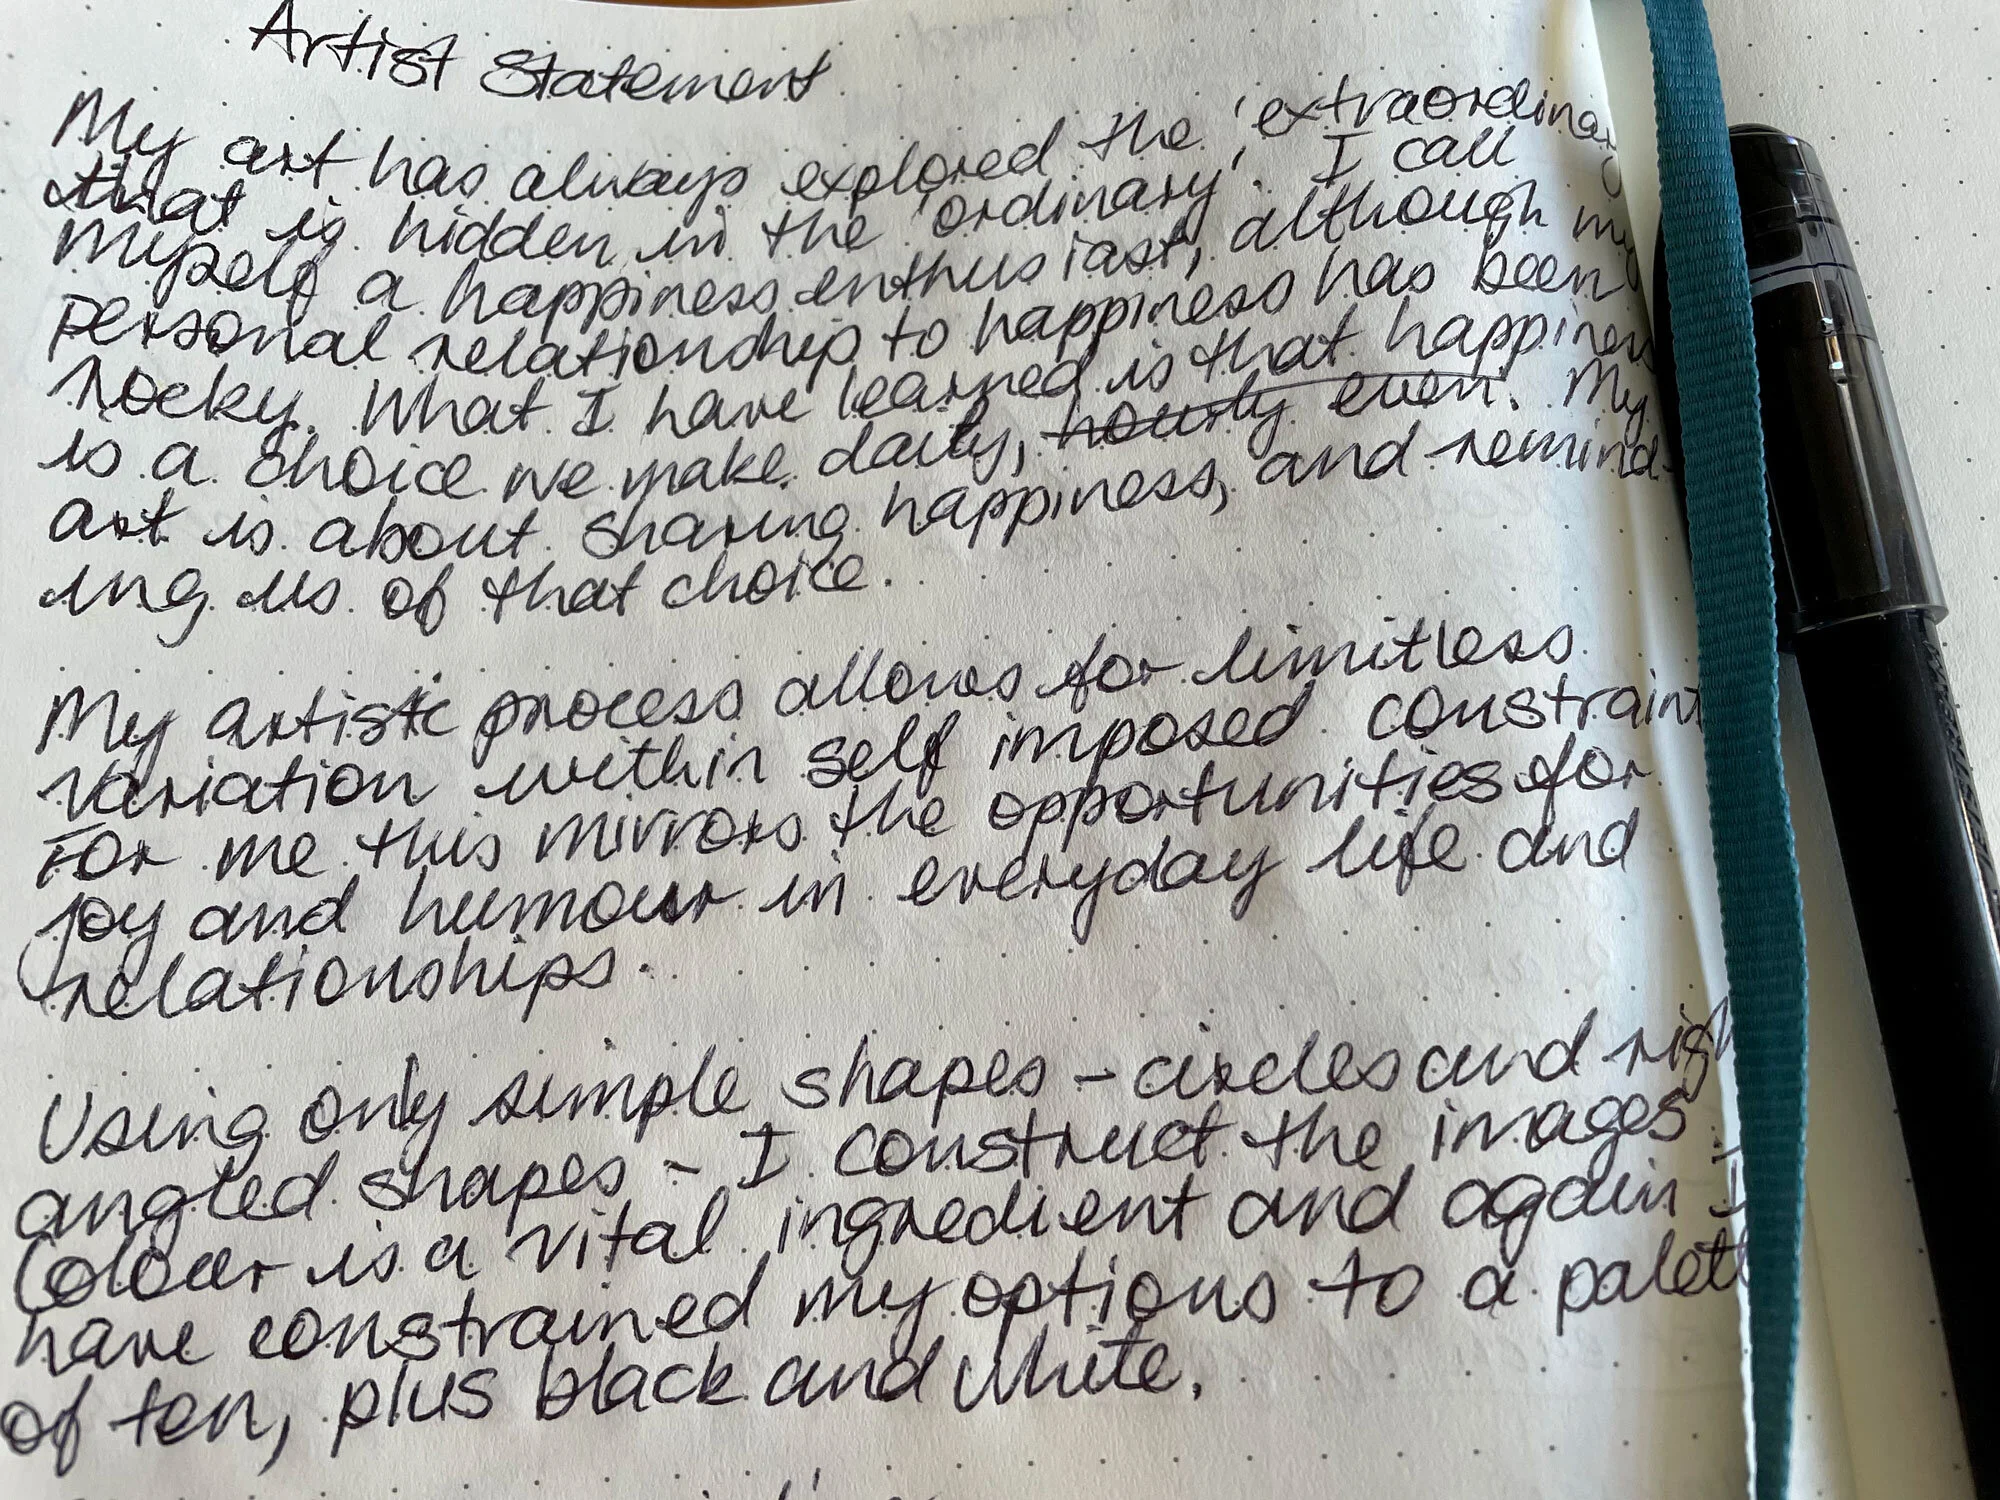 Artist Statement
My art has always explored the 'extraordinary
that is hidden in the 'ordinary'. I call
myself a happiness enthusiast, although my
personal relationship to happiness has been
rocky. What I have learned is that happiness
is a choice we make daily, hourly even. My
art is about sharing happiness, and remind-
ing us of that choice.
My artistic process allows for limitless
variation within self imposed constraint
For me this mirrors the opportunities for
joy and humour in everyday life and
relationships.
Using only simple shapes - circles and righ
angled shapes - I construct the images
Colour is a vital ingredient and again I
have constrained my options to a palett
of ten, plus black and white.